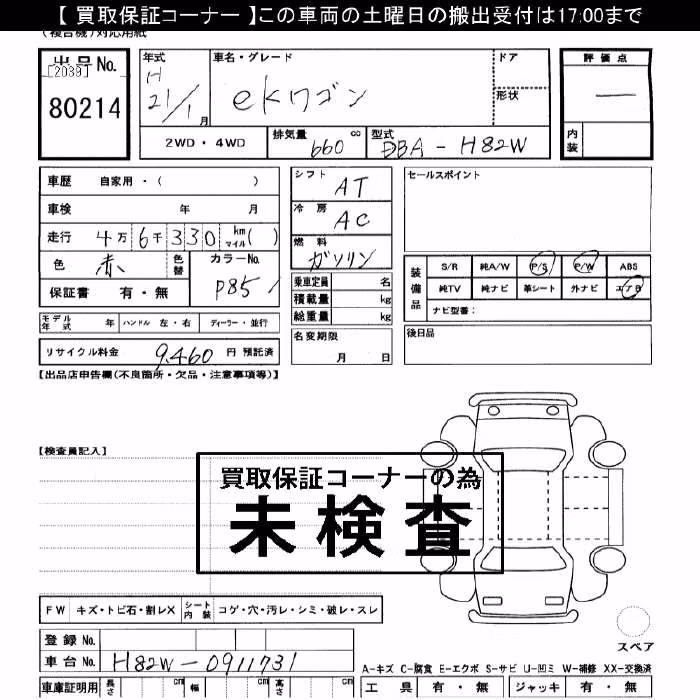 【 買取保証コーナー 】この車両の土曜日の搬出受付は17:00まで
(複合機)対応用紙
出品No.
[2039]
80214
年式
H
21/1月
車名・グレード
ekワゴン
ドア
形状
評価点
―
内装
2WD・4WD
排気量 660 cc
型式 DBA-H82W
車歴 自家用・( )
車検 年 月
走行 4万6千330 km マイル( )
色 赤 色替
カラーNo. P85
保証書 有・無
シフト AT
冷房 AC
燃料 ガソリン
乗車定員 名
積載量 kg
総重量 kg
セールスポイント
装備品
S/R 純A/W P/S P/W ABS
純TV 純ナビ 革シート 外ナビ エアB
ナビ型番:
モデル年式 年 ハンドル 左・右 ディーラー・並行
名変期限
月 日
後日品
リサイクル料金 9,460 円 預託済
【出品店申告欄(不良箇所・欠品・注意事項等)】
【検査員記入】
買取保証コーナーの為
未検査
FW キズ・トビ石・割レX シート内装 コゲ・穴・汚レ・シミ・破レ・スレ
スペア
登録No.
車台No. H82W-0911731
A-キズ C-腐食 E-エクボ S-サビ U-凹ミ W-補修 XX-交換済
車庫証明用 長さ cm 幅 cm 高さ cm
工具 有・無 ジャッキ 有・無